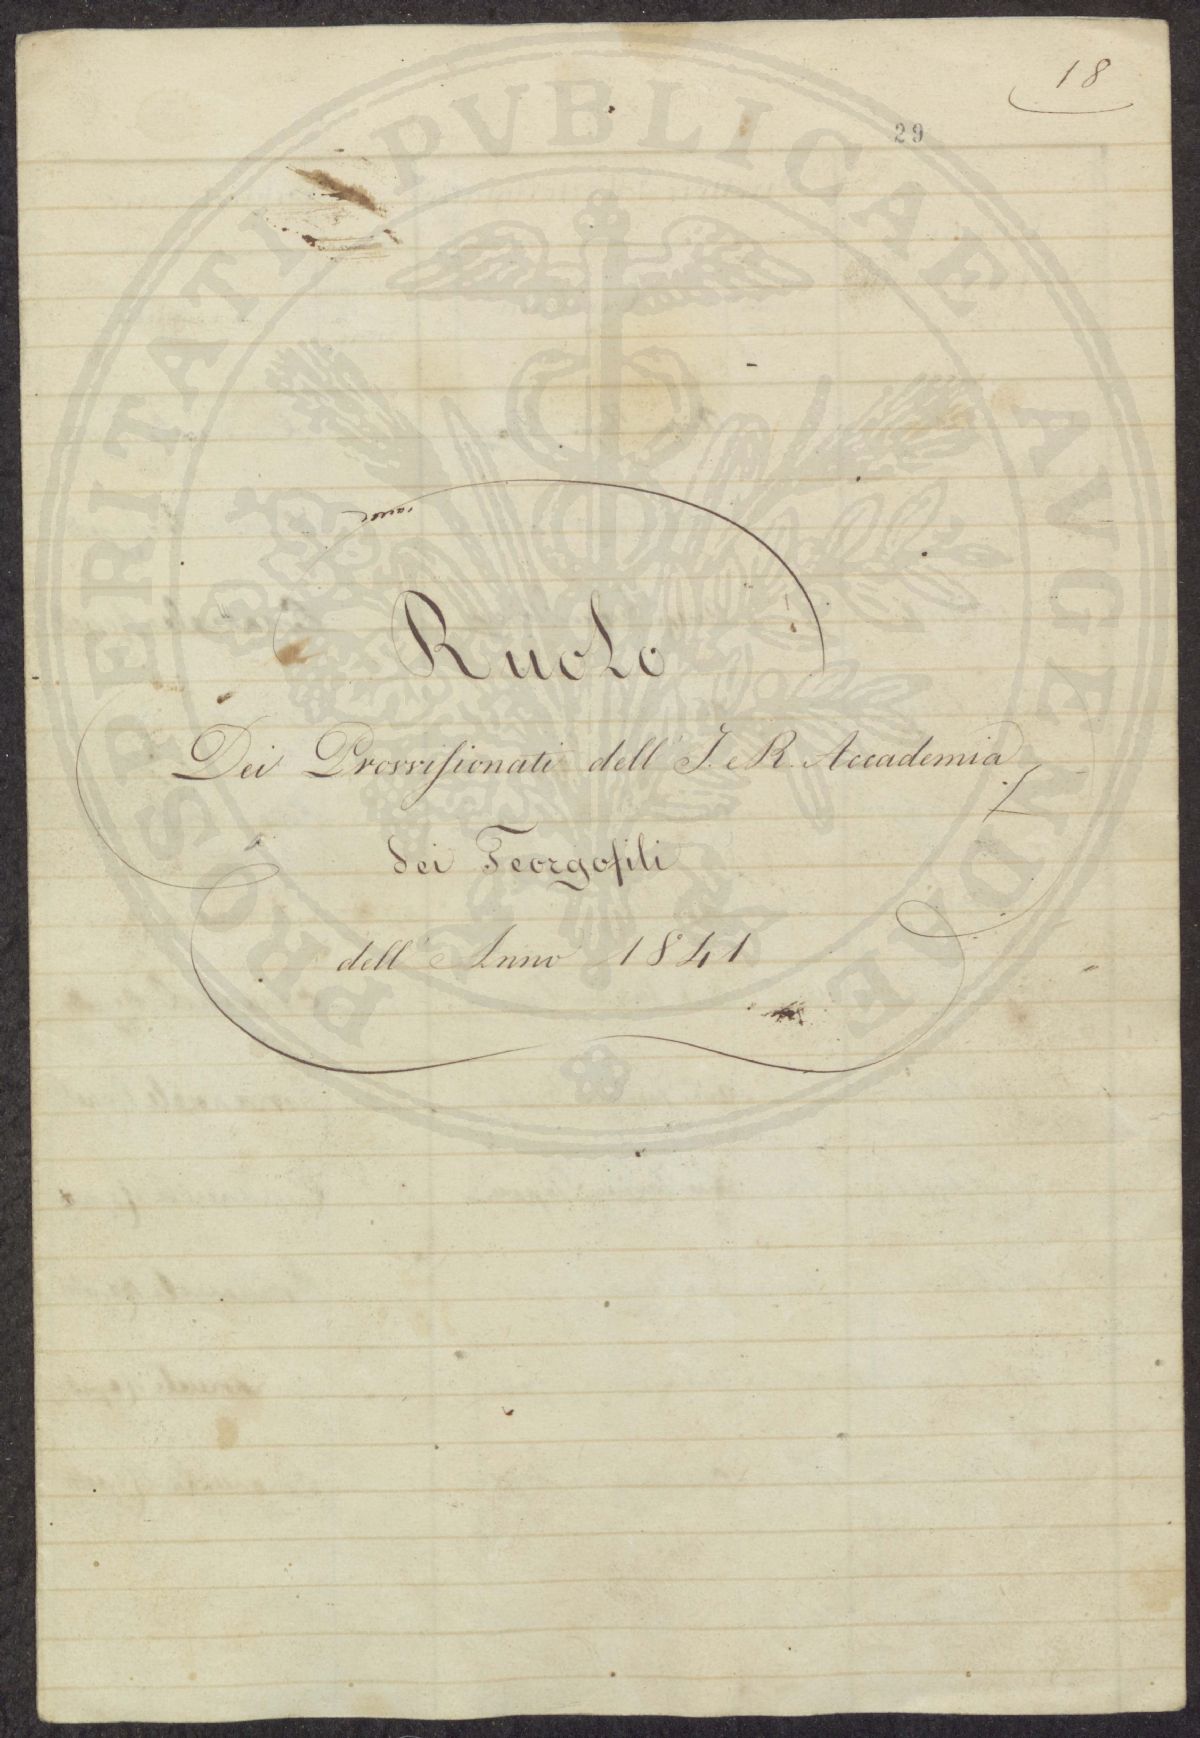 18
29
PROSPERITATI PVBLICAE AVGENDAE
Ruolo
Dei Provvisionati dell' I. e R. Accademia
dei Georgofili
dell' Anno 1841